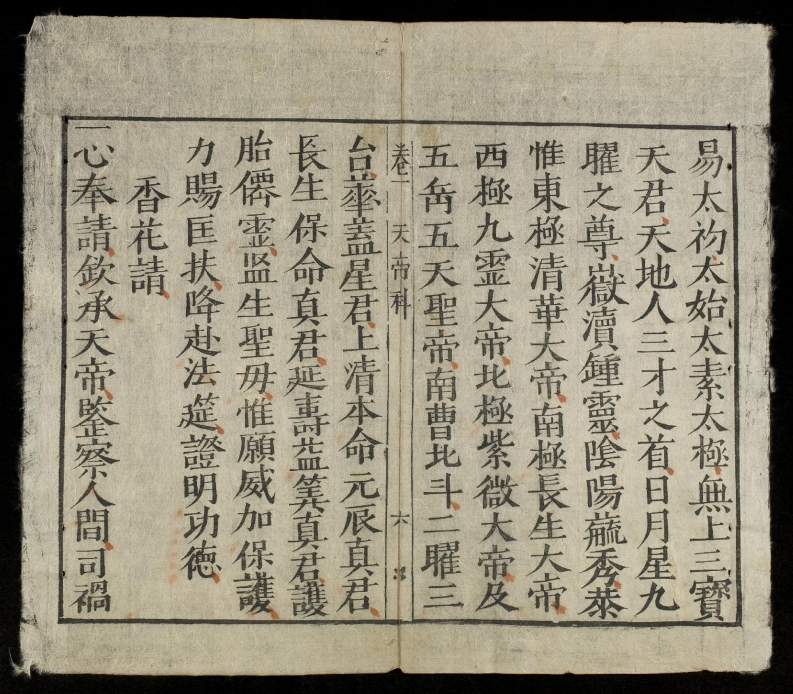 易太初太始太素太極無上三寳
天君天地人三才之首日月星九
曜之尊嶽瀆鍾靈陰陽毓秀恭
惟東極清華大帝南極長生大帝
西極九霊大帝北極紫微大帝及
五岳五天聖帝南曹北斗二曜三
卷一 天帝科 六
台華盖星君上清本命元辰真君
長生保命真君延壽益筭真君護
胎僊霊监生聖母惟願威加保護
力賜匡扶降赴法莚證明功德
香花請
一心奉請欽承天帝鑒察人間司禍